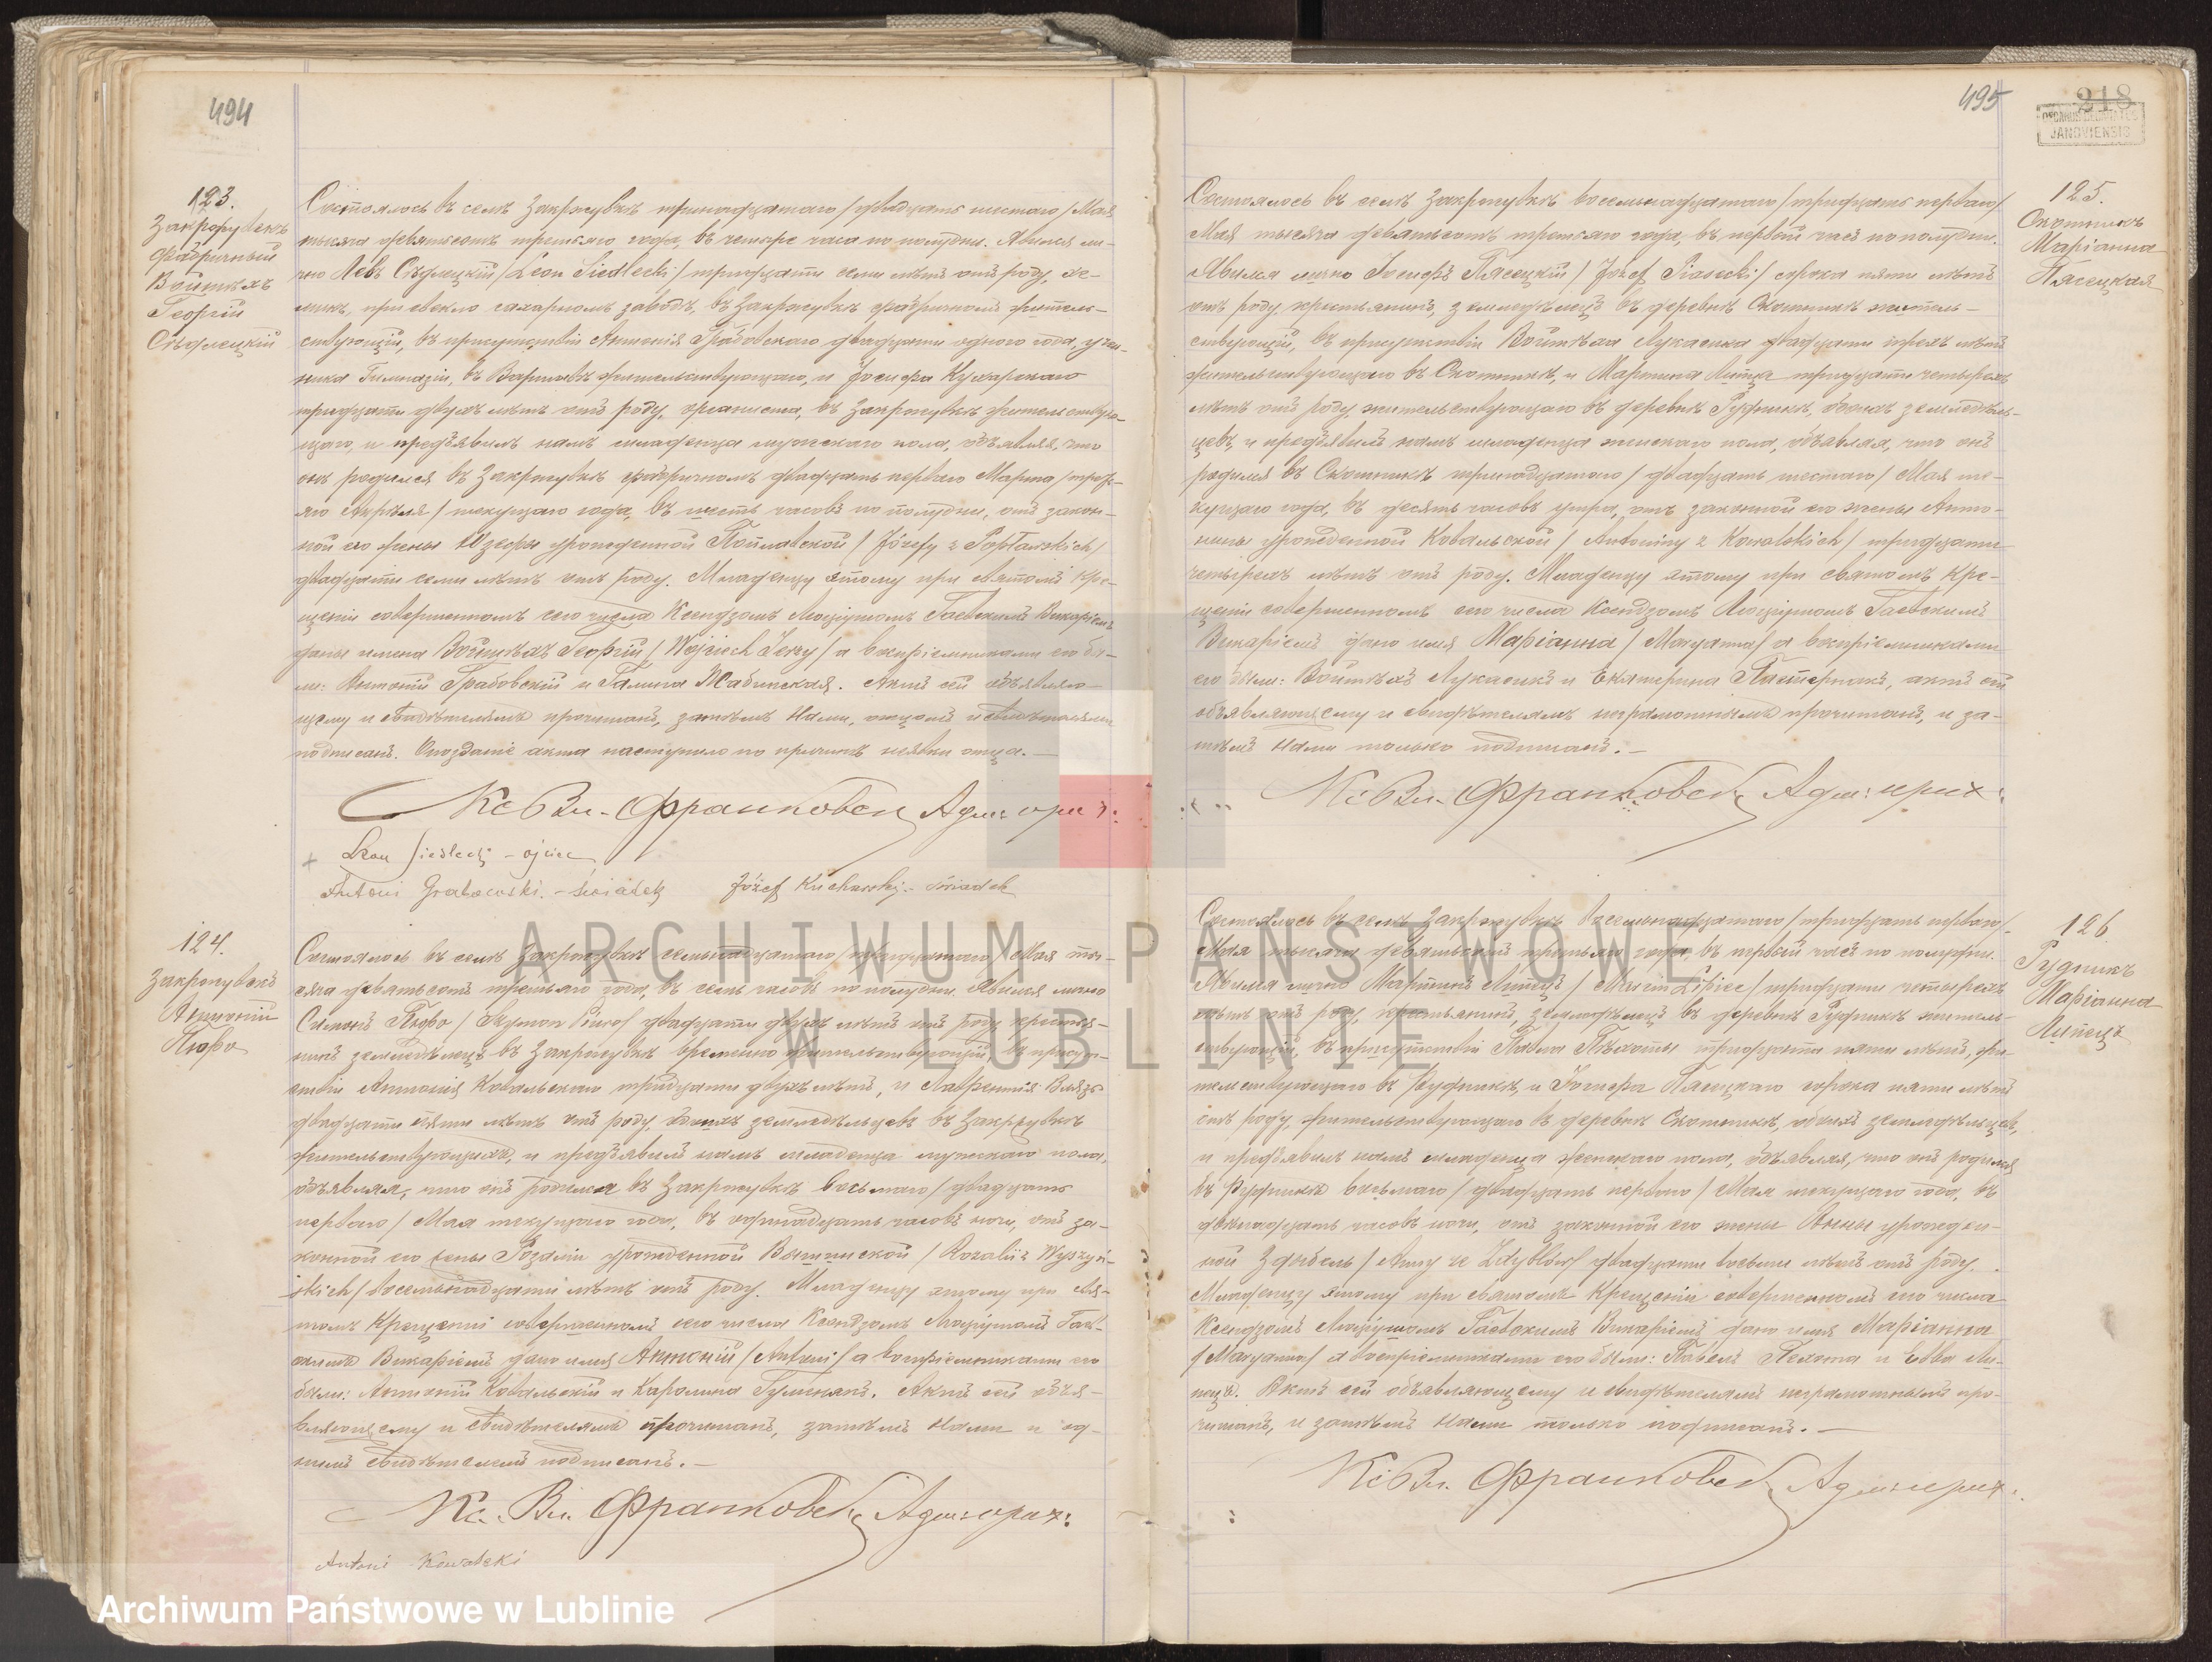 494
123.
Закржувекъ
фабричный
Войтѣхъ
Георгій
Сѣдлецкій
Состоялось въ селѣ Закржувкѣ тринадцатаго /двадцать шестаго/ Мая
тысяча девятьсотъ третьяго года, въ четыре часа по полудни. Явился ли-
чно Левъ Сѣдлецкій /Leon Siedlecki/ тридцати семи лѣтъ отъ роду, хи-
микъ, при свекло сахарномъ заводѣ, въ Закржувкѣ фабричномъ житель-
ствующій, въ присутствіи Антонія Грабовскаго двадцати одного года, уче-
ника Гимназіи, въ Варшавѣ жительствующаго, и Іосифа Кухарскаго
тридцати двухъ лѣтъ отъ роду, органиста, въ Закржувкѣ жительствую-
щаго, и предъявилъ намъ младенца мужескаго пола, объявляя, что
онъ родился въ Закржувкѣ фабричномъ двадцать перваго Марта /треть-
яго Апрѣля/ текущаго года, въ шесть часовъ по полудни, отъ закон-
ной его жены Юзефы урожденной Поплавской /Józefy z Popławskich/
двадцати семи лѣтъ отъ роду. Младенцу этому при святомъ Кре-
щеніи совершенномъ сего числа Ксендзомъ Люціушомъ Гаевскимъ Викаріемъ
даны имена Войтѣхъ Георгій /Wojciech Jerzy/ а воспріемниками его бы-
ли: Антоній Грабовскій и Галина Жабинская. Актъ сей объявляю-
щему и свидѣтелямъ прочитанъ, затѣмъ Нами, отцомъ и свидѣтелями
подписанъ. Опозданіе акта наступило по причинѣ неявки отца. —
Кс Вл. Франковск Адм: прих:
Leon Siedlecki – ojciec
Antoni Grabowski. – świadek Józef Kucharski – świadek
124.
Закржувекъ
Антоній
Пюро
Состоялось въ селѣ Закржувкѣ семнадцатаго /тридцатаго/ Мая ты-
сяча девятьсотъ третьяго года, въ семь часовъ по полудни. Явился лично
Симонъ Пюро /Szymon Piuro/ двадцати двухъ лѣтъ отъ роду, крестья-
нинъ земледѣлецъ въ Закржувкѣ временно жительствующій, въ присут-
ствіи Антонія Ковальскаго тридцати двухъ лѣтъ, и Лаврентія
двадцати пяти лѣтъ отъ роду, обоихъ земледѣльцевъ въ Закржувкѣ
жительствующихъ, и предъявилъ намъ младенца мужескаго пола,
объявляя, что онъ родился въ Закржувкѣ восьмаго /двадцать
перваго/ Мая текущаго года, въ одинадцать часовъ ночи, отъ за-
конной его жены Розаліи урожденной Вышинской /Rozalii z Wyszyń-
skich/ восемьнадцати лѣтъ отъ роду. Младенцу этому при свя-
томъ Крещеніи совершенномъ сего числа Ксендзомъ Люціушомъ Гаев-
скимъ Викаріемъ дано имя Антоній /Antoni/ а воспріемниками его
были: Антоній Ковальскій и Каролина Гулинская. Актъ сей объя-
вляющему и свидѣтелямъ прочитанъ, затѣмъ Нами и од-
нимъ свидѣтелемъ подписанъ. —
Кс. Вл. Франковск Адм: прих:
Antoni Kowalski
495
218
JANOVIENSIS
125.
Скотникъ
Маріанна
Пясецкая
Состоялось въ селѣ Закржувкѣ восемьнадцатаго /тридцать перваго/
Мая тысяча девятьсотъ третьяго года, въ первый часъ по полудни.
Явился лично Іосифъ Пясецкій /Józef Piasecki/ сорока пяти лѣтъ
отъ роду, крестьянинъ, земледѣлецъ въ деревнѣ Скотникѣ житель-
ствующій, въ присутствіи Войтѣха Лукасика двадцати трехъ лѣтъ
жительствующаго въ Скотникѣ, и Мартина Липца тридцати четырехъ
лѣтъ отъ роду, жительствующаго въ деревнѣ Рудникѣ, обоихъ земледѣль-
цевъ, и предъявилъ намъ младенца женскаго пола, объявляя, что онъ
родился въ Скотникѣ тринадцатаго /двадцать шестаго/ Мая те-
кущаго года, въ десять часовъ утра, отъ законной его жены Анто-
нины урожденной Ковальской /Antoniny z Kowalskich/ тридцати
четырехъ лѣтъ отъ роду. Младенцу этому при святомъ Кре-
щеніи совершенномъ сего числа Ксендзомъ Люціушомъ Гаевскимъ
Викаріемъ дано имя Маріанна /Maryanna/ а воспріемниками
его были: Войтѣхъ Лукасикъ и Екатерина Пастернакъ, актъ сей
объявляющему и свидѣтелямъ неграмотнымъ прочитанъ, и за-
тѣмъ Нами только подписанъ. —
Кс Вл. Франковск Адм: прих:
126
Рудникъ
Маріанна
Липецъ
Состоялось въ селѣ Закржувкѣ восемьнадцатаго /тридцать перваго/
Мая тысяча девятьсотъ третьяго года, въ первый часъ по полудни.
Явился лично Мартинъ Липецъ /Marcin Lipiec/ тридцати четырехъ
лѣтъ отъ роду, крестьянинъ, земледѣлецъ въ деревнѣ Рудникѣ житель-
ствующій, въ присутствіи Павла Пѣхоты тридцати пяти лѣтъ, жи-
тельствующаго въ Рудникѣ, и Іосифа Пясецкаго сорока пяти лѣтъ
отъ роду, жительствующаго въ деревнѣ Скотникѣ, обоихъ земледѣльцевъ,
и предъявилъ намъ младенца женскаго пола, объявляя, что онъ родился
въ Рудникѣ восьмаго /двадцать перваго/ Мая текущаго года, въ
двѣнадцать часовъ ночи, отъ законной его жены Анны урожден-
ной Здыбель /Anny ze Zdyblów/ двадцати восьми лѣтъ отъ роду.
Младенцу этому при святомъ Крещеніи совершенномъ сего числа
Ксендзомъ Люціушомъ Гаевскимъ Викаріемъ дано имя Маріанна
/Maryanna/ а воспріемниками его были: Павелъ Пехота и Евва Ли-
пецъ. Актъ сей объявляющему и свидѣтелямъ неграмотнымъ про-
читанъ, и затѣмъ Нами только подписанъ. —
Кс Вл. Франковск Адм: прих:
ARCHIWUM PAŃSTWOWE
W LUBLINIE
Archiwum Państwowe w Lublinie